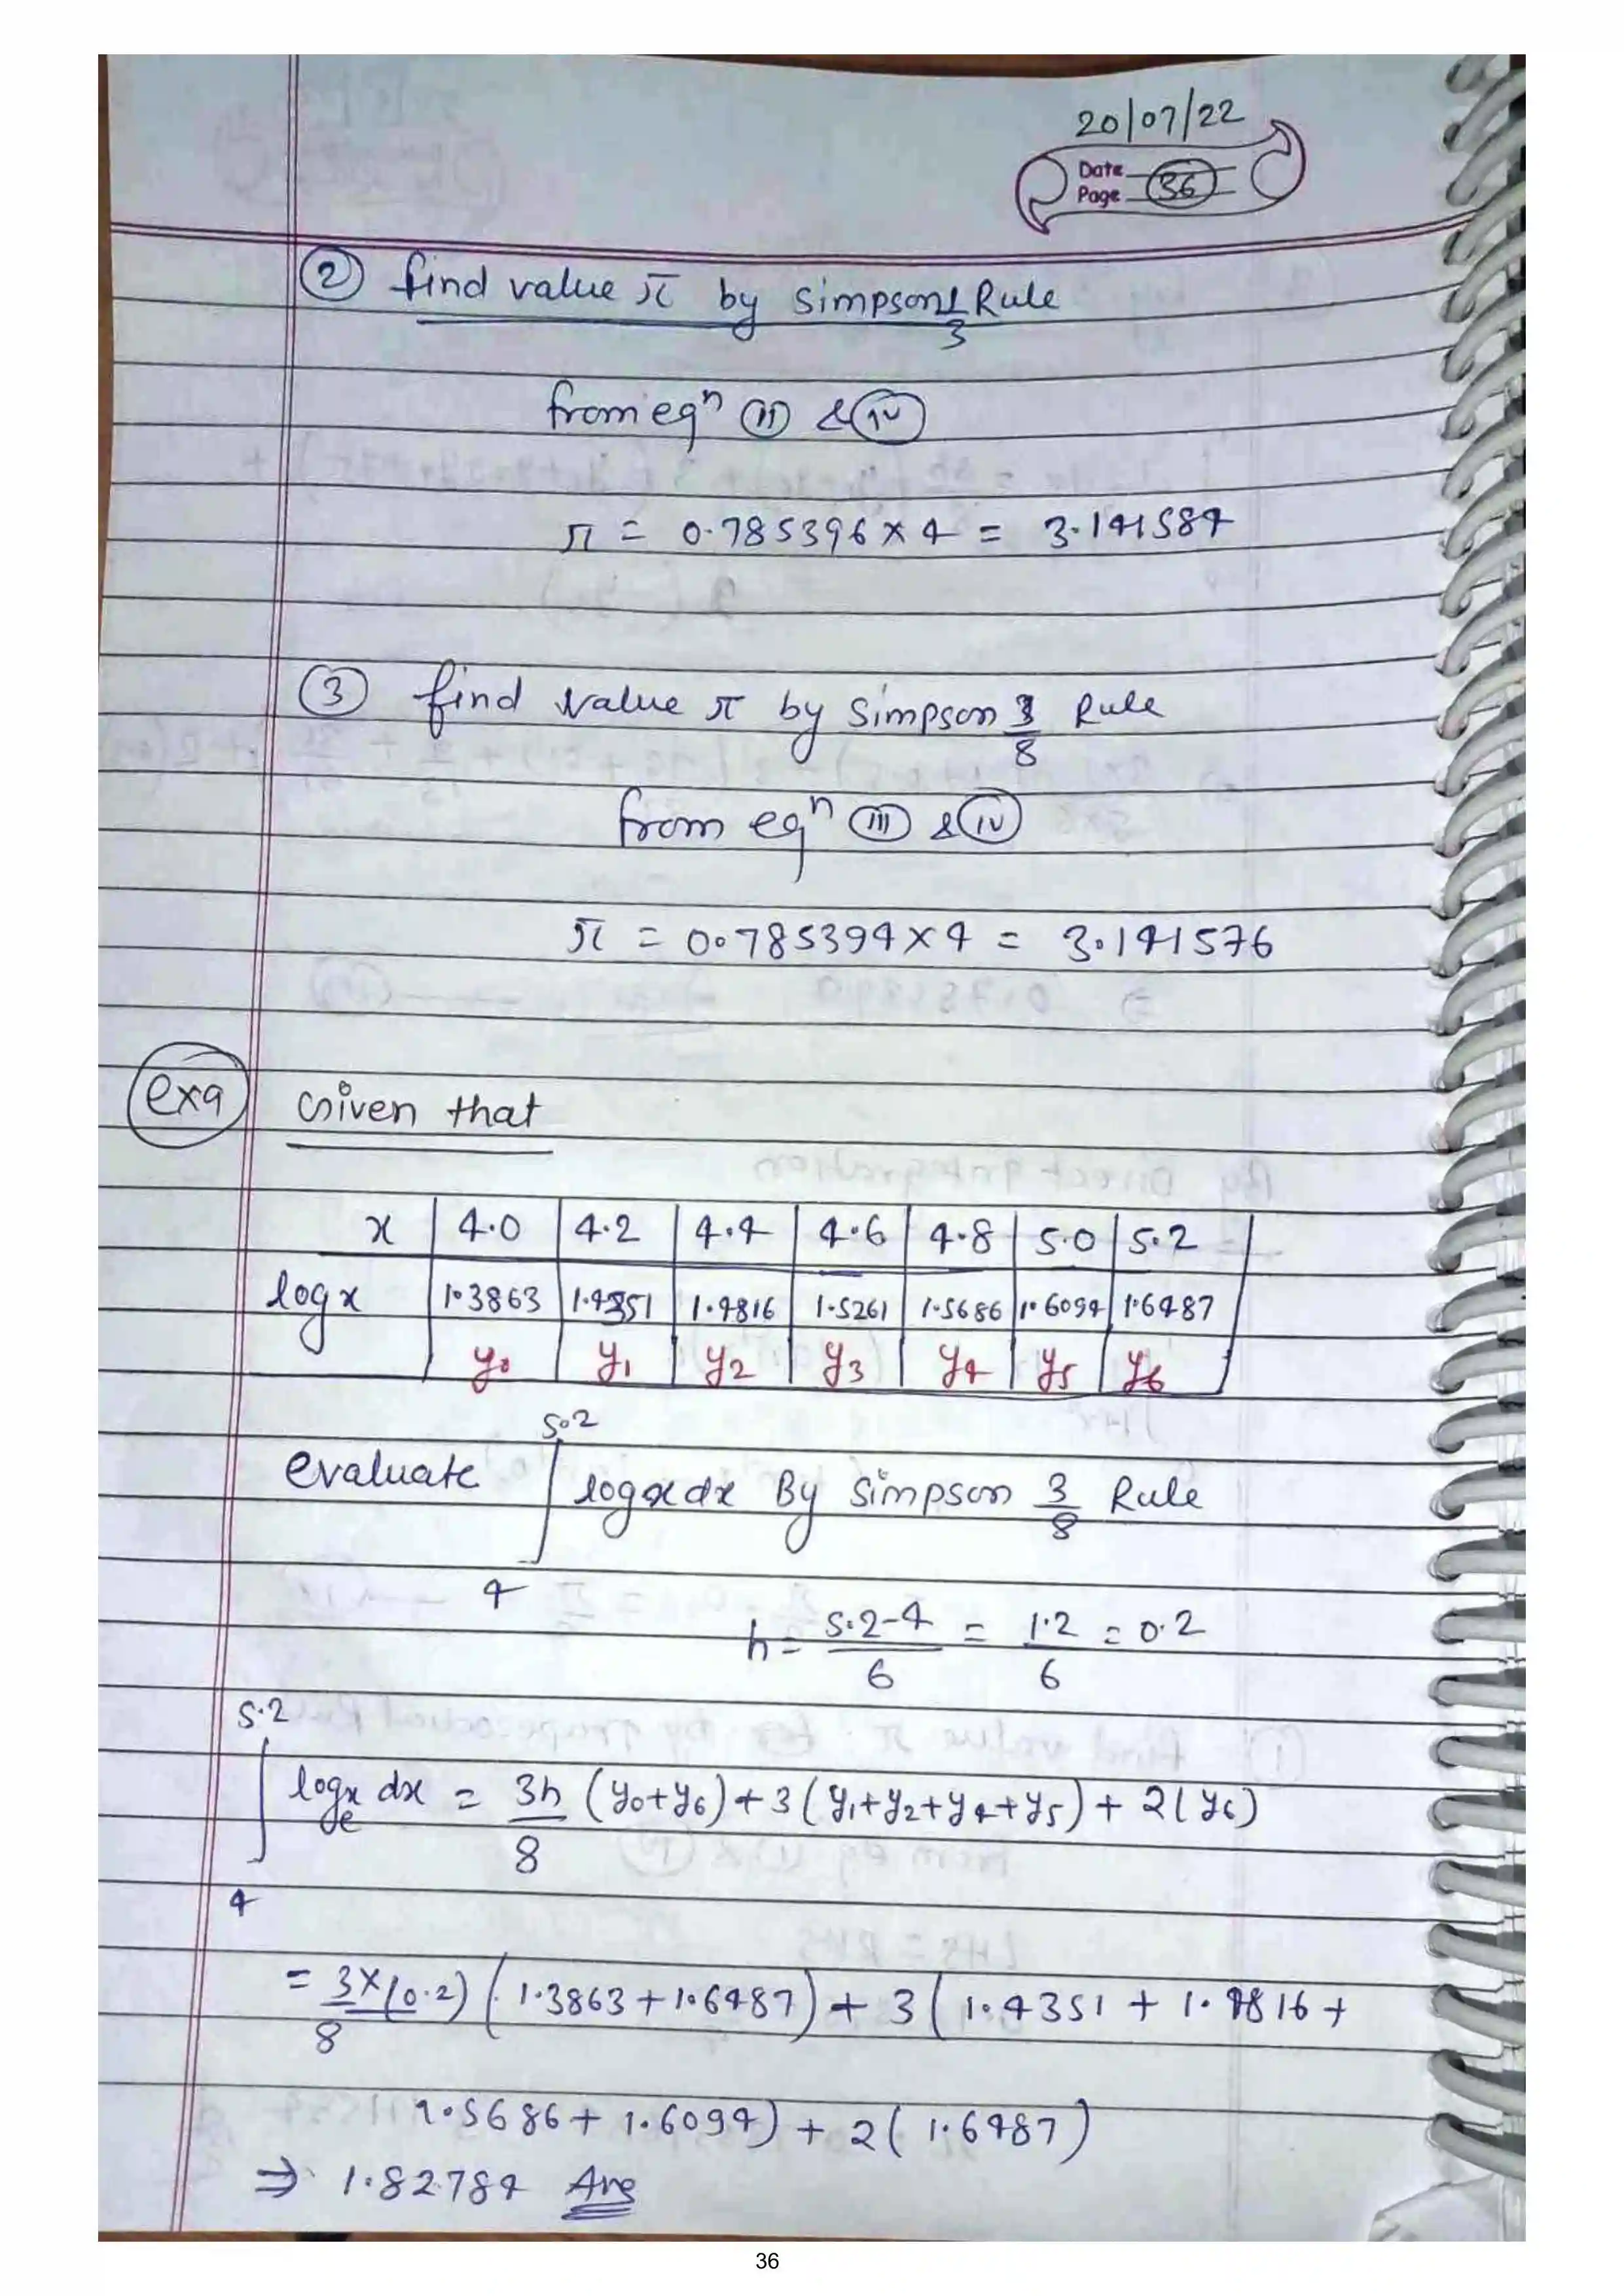 20/07/22
Date
Page 36
② find value π by Simpson 1/3 Rule
from eqⁿ (II) & (IV)
π = 0.785396 × 4 = 3.141584
③ find value π by Simpson 3/8 Rule
from eqⁿ (III) & (IV)
π = 0.785394 × 4 = 3.141576
exa Given that
x | 4.0 | 4.2 | 4.4 | 4.6 | 4.8 | 5.0 | 5.2
log x | 1.3863 | 1.4351 | 1.4816 | 1.5261 | 1.5686 | 1.6094 | 1.6487
y₀ | y₁ | y₂ | y₃ | y₄ | y₅ | y₆
evaluate ∫₄^5.2 log x dx By Simpson 3/8 Rule
h = (5.2-4)/6 = 1.2/6 = 0.2
∫₄^5.2 logₑx dx = 3h/8 (y₀+y₆) + 3(y₁+y₂+y₄+y₅) + 2(y₆)
= 3×(0.2)/8 (1.3863 + 1.6487) + 3(1.4351 + 1.4816 +
1.5686 + 1.6094) + 2(1.6487)
⇒ 1.82784 Ans
36